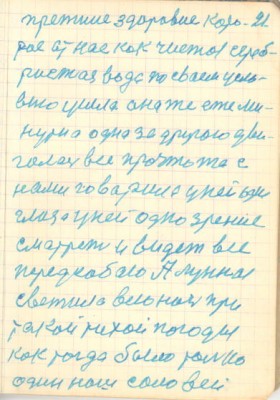 прежние здоровие кото- 21.
рое от нас как чистая сереб-
ристая вода по своем усло-
вию ушла она же еже ми-
нутно одна за другою дви-
галась все прочь та с
нами говарила у ней одни
глаза у ней одно зрение
сматрет и видет все
перед собою А лунная
светила всю ноч при
такой тихой погоды
как тогда было только
один наш соловей